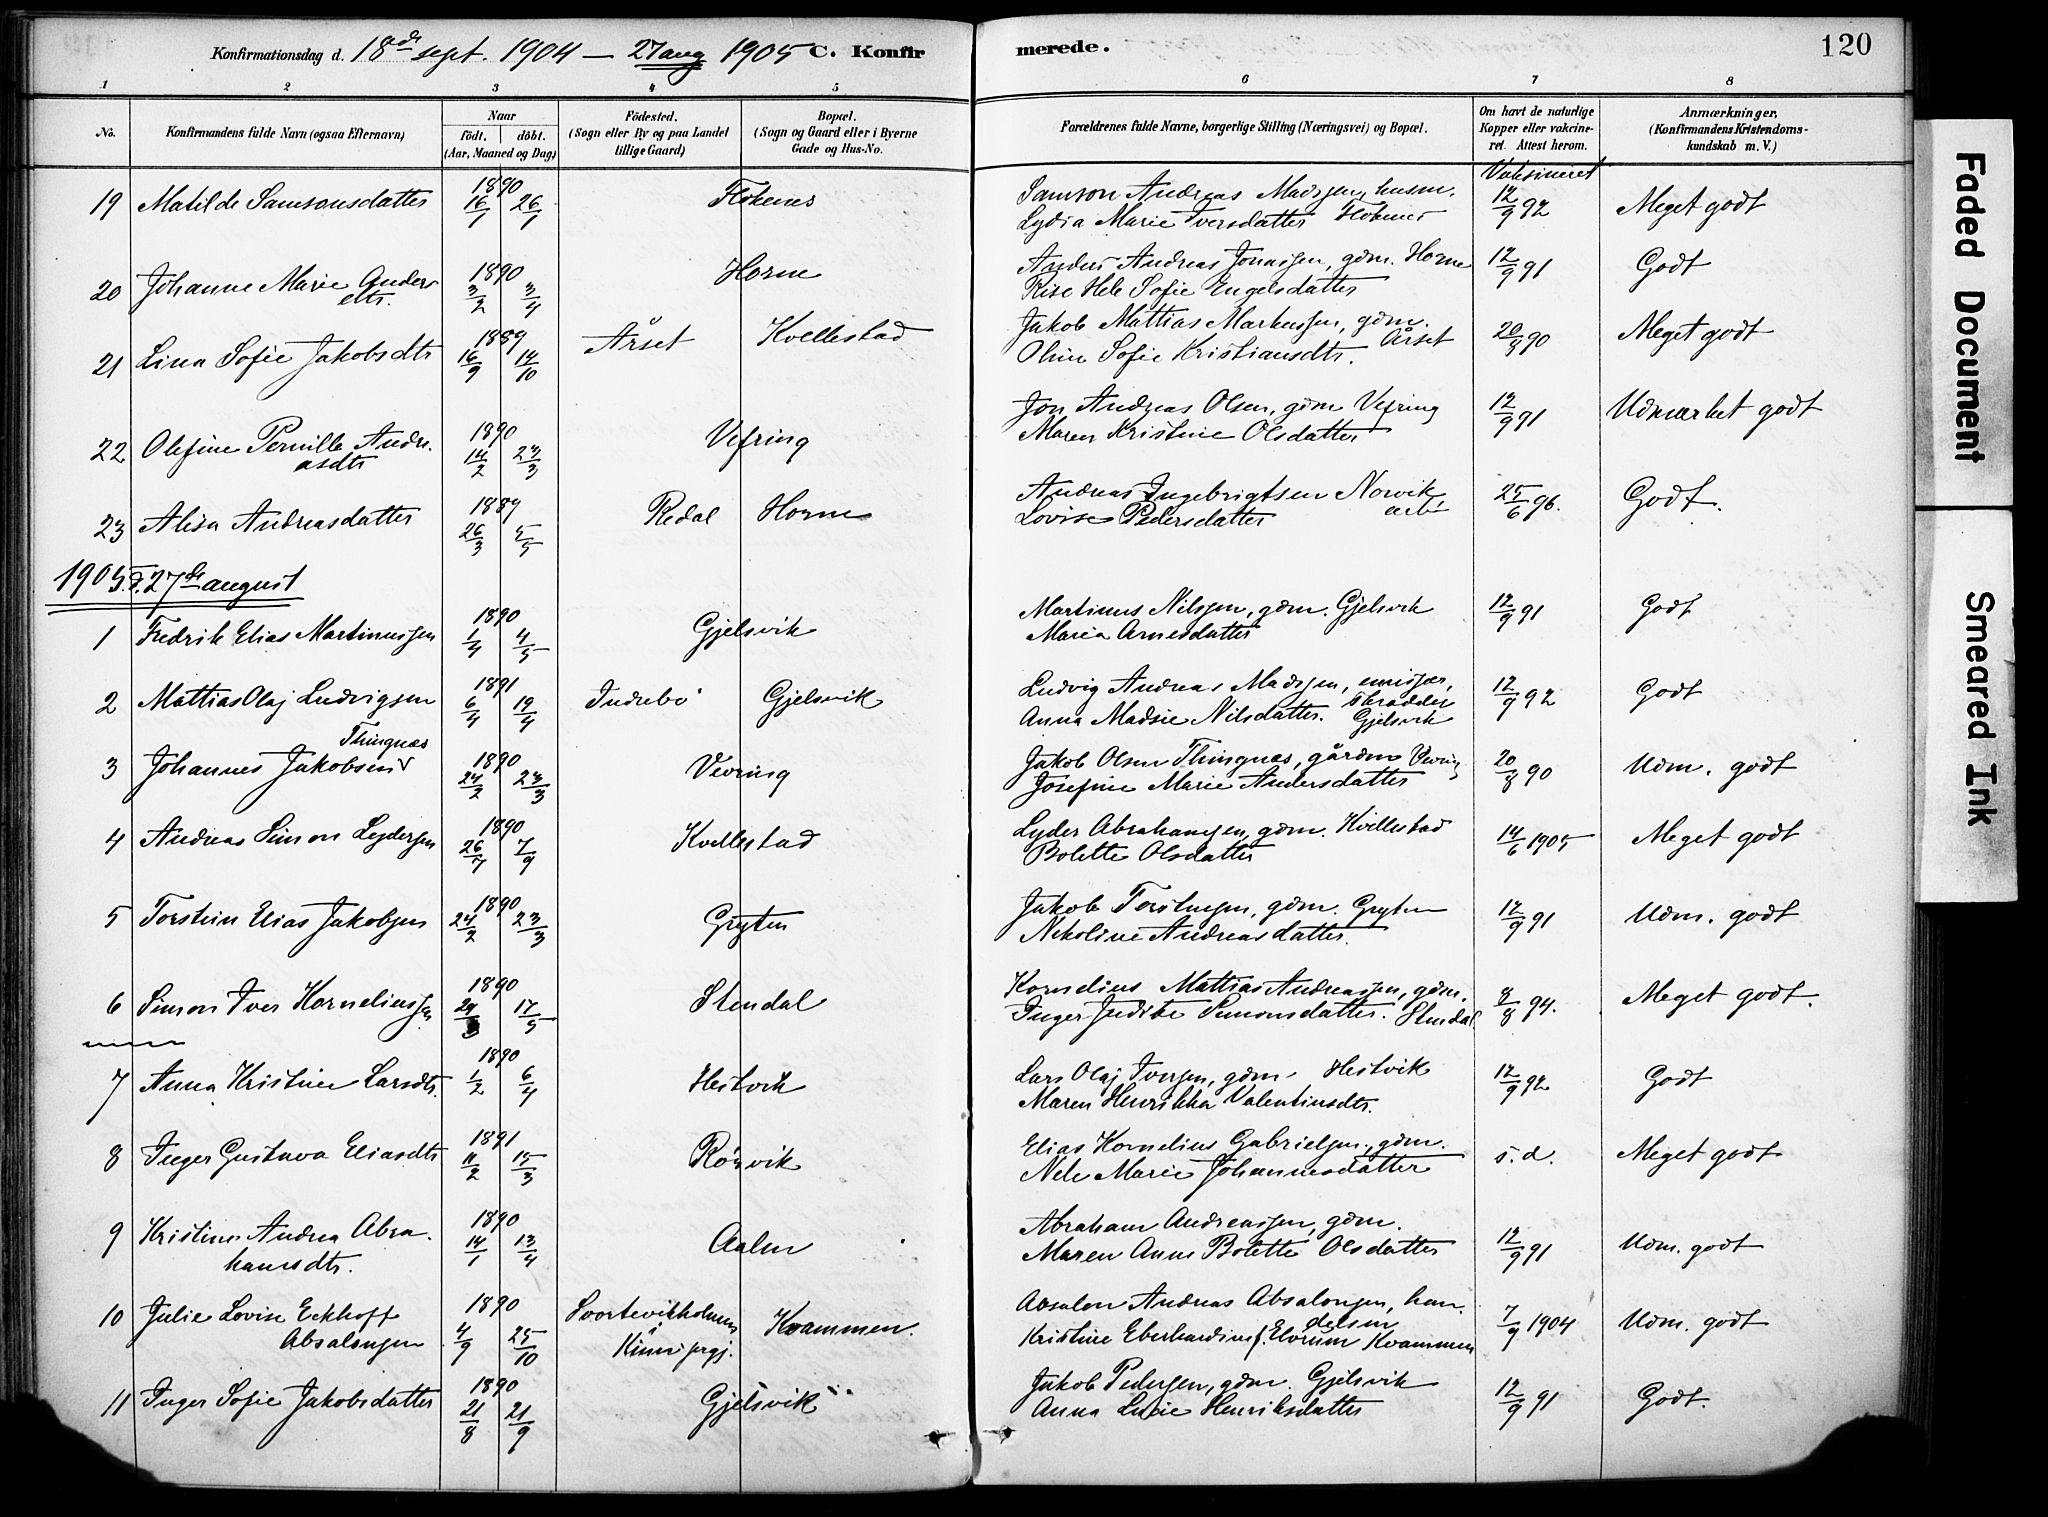 Konfirmationsdag d. 18de sept. 1904 — 27 aug 1905 C. Konfirmerede. 120
1 2 3 4 5 6 7 8
No. Konfirmandens fulde Navn (ogsaa Efternavn) Naar födt. döbt. (Aar, Maaned og Dag) Födested. (Sogn eller By og paa Landet tillige Gaard) Bopæl. (Sogn og Gaard eller i Byerne Gade og Hus-No. Forældrenes fulde Navne, borgerlige Stilling (Næringsvei) og Bopæl. Om havt de naturlige Kopper eller vakcineret. Attest herom. Anmærkninger, (Konfirmandens Kristendomskundskab m. V.)
Vaksineret
19 Matilde Samsonsdatter 1890 16/1 26/1 Flokenes Samson Andreas Madssen, husm. 12/9 92 Meget godt
Lydia Marie Iversdatter Flokenes
20 Johanne Marie Andersdtr. 1890 3/2 3/4 Horne Anders Andreas Jonassen, gdm. Horne 12/9 91 Godt
Sofie Engelsdatter
21 Lina Sofie Jakobsdtr 1889 16/9 14/10 Årset Kvellestad Jakob Mattias Markussen, gdm. Årset 20/8 90 Meget godt
Oline Sofie Kristiansdtr.
22 Olefine Pernille Andreasdtr 1890 14/2 23/3 Vefring Jon Andreas Olsen, gdm Vefring 12/9 91 Udmærket godt
Maren Kristine Olsdatter
23 Alisa Andreasdatter 1889 26/3 5/5 Redal Horne Andreas Ingebrigtsen Norvik, arb. 25/6 96. Godt.
Lovise Pedersdatter
1905. d. 27de august
1 Fredrik Elias Martinussen 1890 1/4 4/5 Gjelsvik Martinus Nilssen, gdm. Gjelsvik 12/9 91 Godt
Maria Arnesdatter
2 Mattias Olaj Ludvigsen 1891 6/4 19/4 Indrebö Gjelsvik Ludvig Andreas Madssen, emissær, skrædder 12/9 92 Godt
Anna Madsie Nilsdatter. Gjelsvik
3 Johannes Jakobsen Thingnæs 1890 24/2 23/3 Vevring Jakob Olsen Thingnæs, gårdm Vevring 20/8 90 Udm. godt
Josefine Marie Andersdatter
4 Andreas Simon Lydersen 1890 26/7 7/9 Kvellestad Lyder Abrahamsen, gdm. Kvellestad 14/6 1905 Meget godt
Bolette Olsdatter
5 Torstein Elias Jakobsen 1890 24/2 23/3 Gryten Jakob Torstensen, gdm. Gryten 12/9 91 Udm. godt
Nikoline Andreasdatter.
6 Simon Iver Korneliussen 1890 29/3 17/5 Stendal Kornelius Mattias Andreassen, gdm. 8/8 94. Meget godt.
Inger Judite Simonsdatter. Stendal
7 Anna Kristine Larsdtr. 1890 1/2 6/4 Hestvik Lars Olaj Iversen, gdm. Hestvik 12/9 92 Godt
Maren Henrikka Valentinsdtr.
8 Inger Gustava Eliasdtr 1891 11/2 15/3 Rörvik Elias Kornelius Gabrielsen, gdm. s.d. Meget godt
Nele Marie Johannesdatter
9 Kristine Andrea Abrahamsdtr. 1890 14/1 13/4 Aalen Abraham Andreassen, gdm. 12/9 91 Udm. godt
Maren Anne Bolette Olsdatter
10 Julie Lovise Eckhoff Absalonsen 1890 4/9 25/10 Svartevikholmen Kinn prgj. Kvammen. Absalon Andreas Absalonsen, handelsm 7/9 1904 Udm. godt
Kristine Eberhardine f. Elvrum Kvammen
11 Inger Sofie Jakobsdatter 1890 21/8 21/9 Gjelsvik Jakob Pedersen, gdm. Gjelsvik 12/9 91 Godt.
Anna Lucie Henriksdatter
Faded Document
Smeared Ink